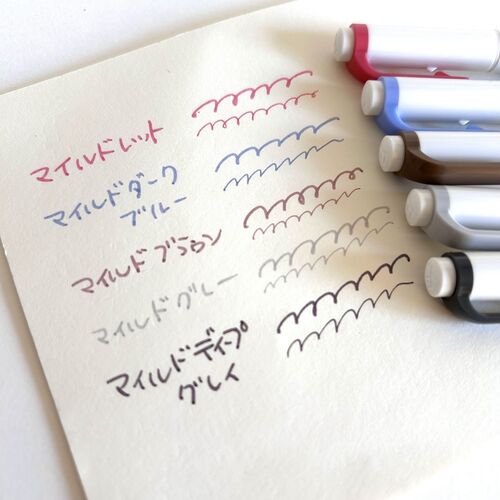 マイルドレット
マイルドダーク
ブルー
マイルドブラウン
マイルドグレー
マイルドディープ
グレイ